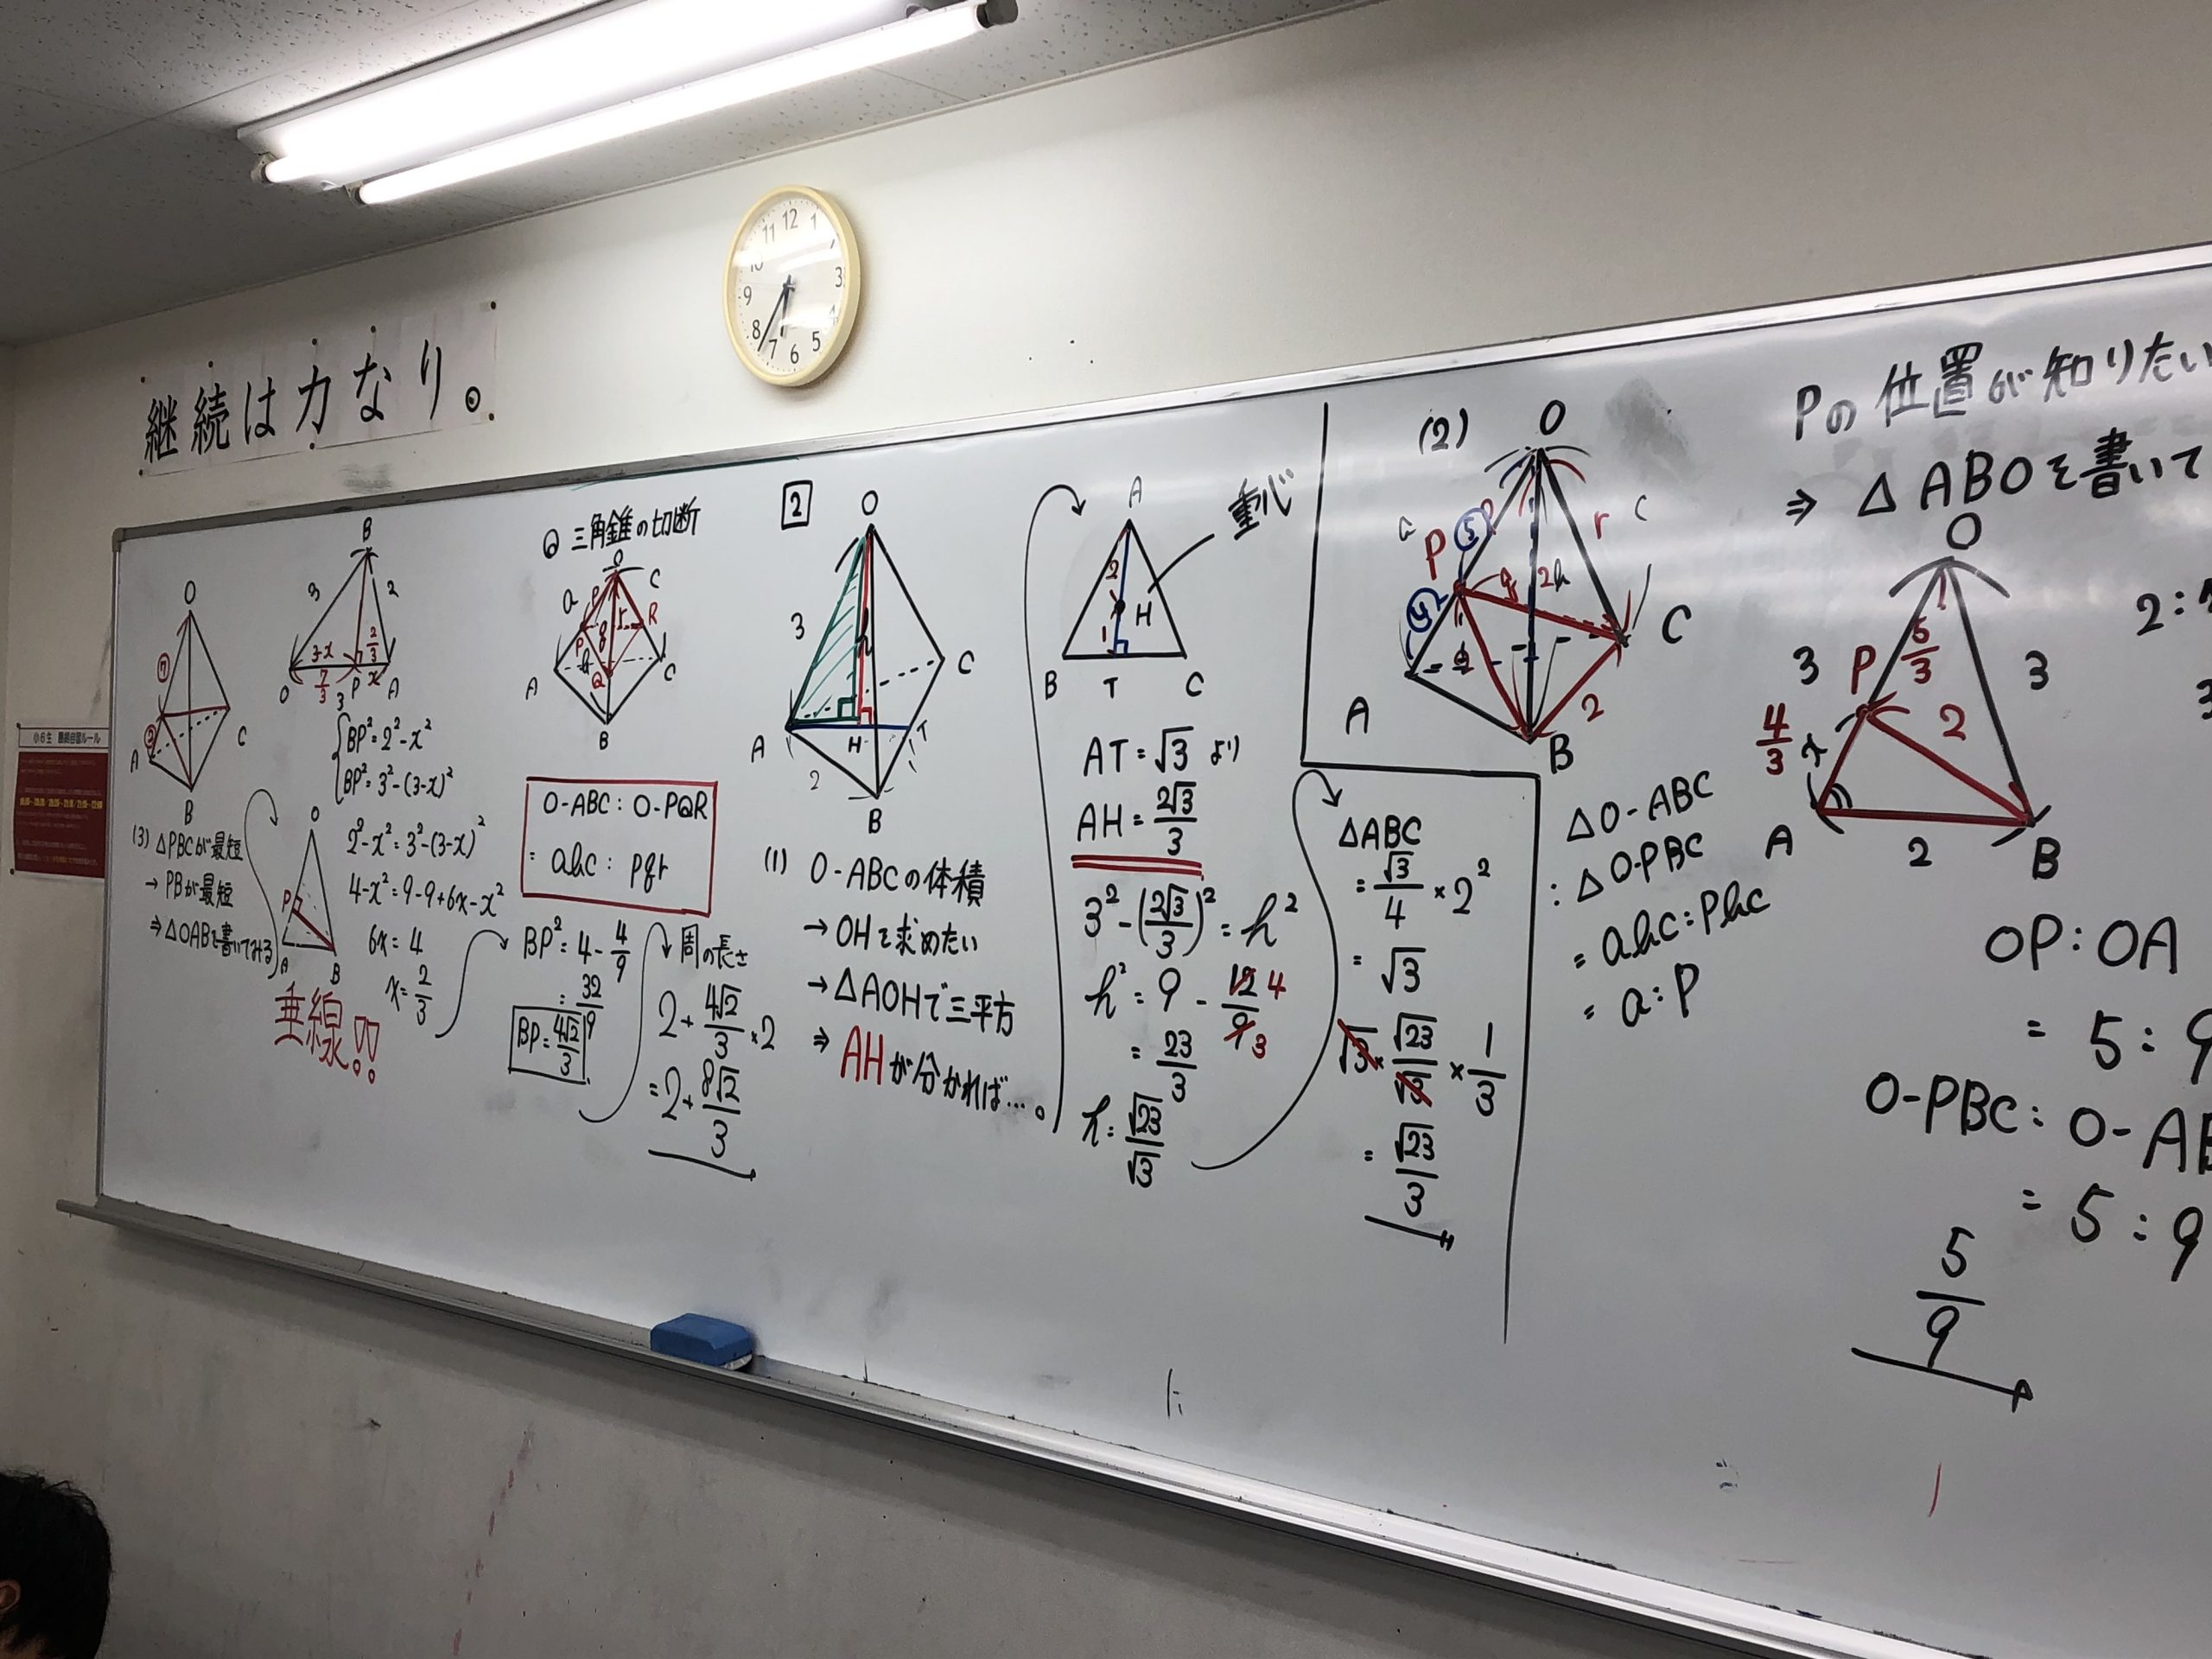 継続は力なり。
12
1
2
3
4
5
6
7
8
9
10
11
小6生 勝績自習ルール
O
⑦
②
A
B
C
(3) △PBCが最短
→ PBが最短
⇒ △OABを書いてみる
B
3
2
3-x
2/3
O
7/3
P
x
A
3
BP²=2²-x²
BP²=3²-(3-x)²
O
P
A
B
垂線!!
2²-x²=3²-(3-x)²
4-x²=9-9+6x-x²
6x=4
x=2/3
◎ 三角錐の切断
O
a
p
c
P
q
r
R
b
Q
A
C
B
O-ABC:O-PQR
=abc:pqr
BP²=4-4/9
=32/9
BP=4√2/3
周の長さ
2+4√2/3×2
=2+8√2/3
2
O
3
h
A
H
T
C
2
B
(1) O-ABCの体積
→ OHを求めたい
→ △AOHで三平方
⇒ AHが分かれば…。
A
重心
2
H
1
B
T
C
AT=√3 より
AH=2√3/3
3²-(2√3/3)²=h²
h²=9-12/9 4 3
=23/3
h=√23/√3
△ABC
=√3/4×2²
=√3
√3×√23/√3×1/3
=√23/3
(2)
O
a
P
⑤
p
r
c
q
2
b
④
C
A
2
B
△O-ABC
:△O-PBC
=abc:pbc
=a:p
Pの位置が知りたい
⇒ △ABOを書いて
O
5/3
3
P
3
4/3
2
A
2
B
2:
3
OP:OA
=5:9
O-PBC:O-AB
=5:9
5/9